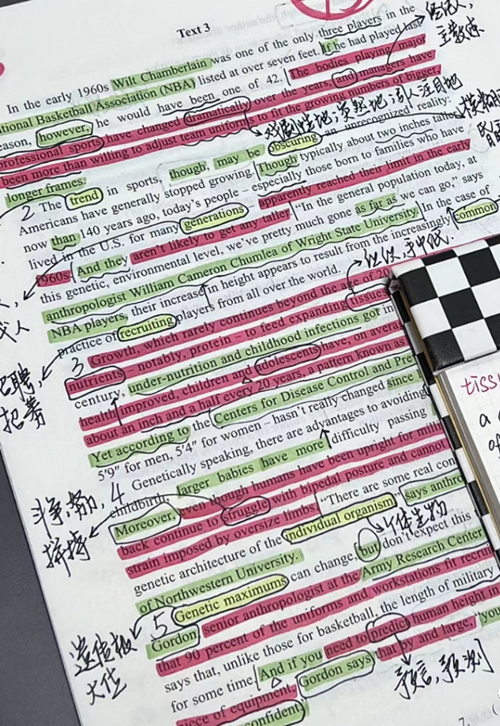 Text 3
In the early 1960s Wilt Chamberlain was one of the only three players in the
National Basketball Association (NBA) listed at over seven feet. If he had played last
season, however, he would have been one of 42. The bodies playing major
professional sports have changed dramatically over the years, and managers have
been more than willing to adjust team uniforms to fit the growing numbers of bigger,
longer frames.
戏剧性地,突然地,引人注目地
The trend in sports, though, may be obscuring an unrecognized reality:
Americans have generally stopped growing. Though typically about two inches taller
now than 140 years ago, today's people – especially those born to families who have
lived in the U.S. for many generations – apparently reached their limit in the early
1960s. And they aren't likely to get any taller. "In the general population today, at
this genetic, environmental level, we've pretty much gone as far as we can go," says
anthropologist William Cameron Chumlea of Wright State University. In the case of
NBA players, their increase in height appears to result from the increasingly common
practice of recruiting players from all over the world.
2
招聘
招募
3
Growth, which rarely continues beyond the age of 20
nutrients – notably, protein – to feed expanding tissues
century, under-nutrition and childhood infections got in
health improved, children and adolescents have, on avera
about an inch and a half every 20 years, a pattern known as
Yet according to the Centers for Disease Control and Pre
5'9" for men, 5'4" for women – hasn't really changed since
4
Genetically speaking, there are advantages to avoiding
childbirth, larger babies have more difficulty passing
Moreover, even though humans have been upright for milli
back continue to struggle with bipedal posture and cannot
strain imposed by oversize limbs. "There are some real con
genetic architecture of the individual organism," says anthro
of Northwestern University.
个体生物
5
Genetic maximums can change, but don't expect this
Gordon, senior anthropologist at the Army Research Center
that 90 percent of the uniforms and workstations fit recru
says that, unlike those for basketball, the length of military
for some time. And if you need to predict human height
piece of equipment, Gordon says that by and large, "you
confident
遗传极
大值
预言,预测
tiss
a